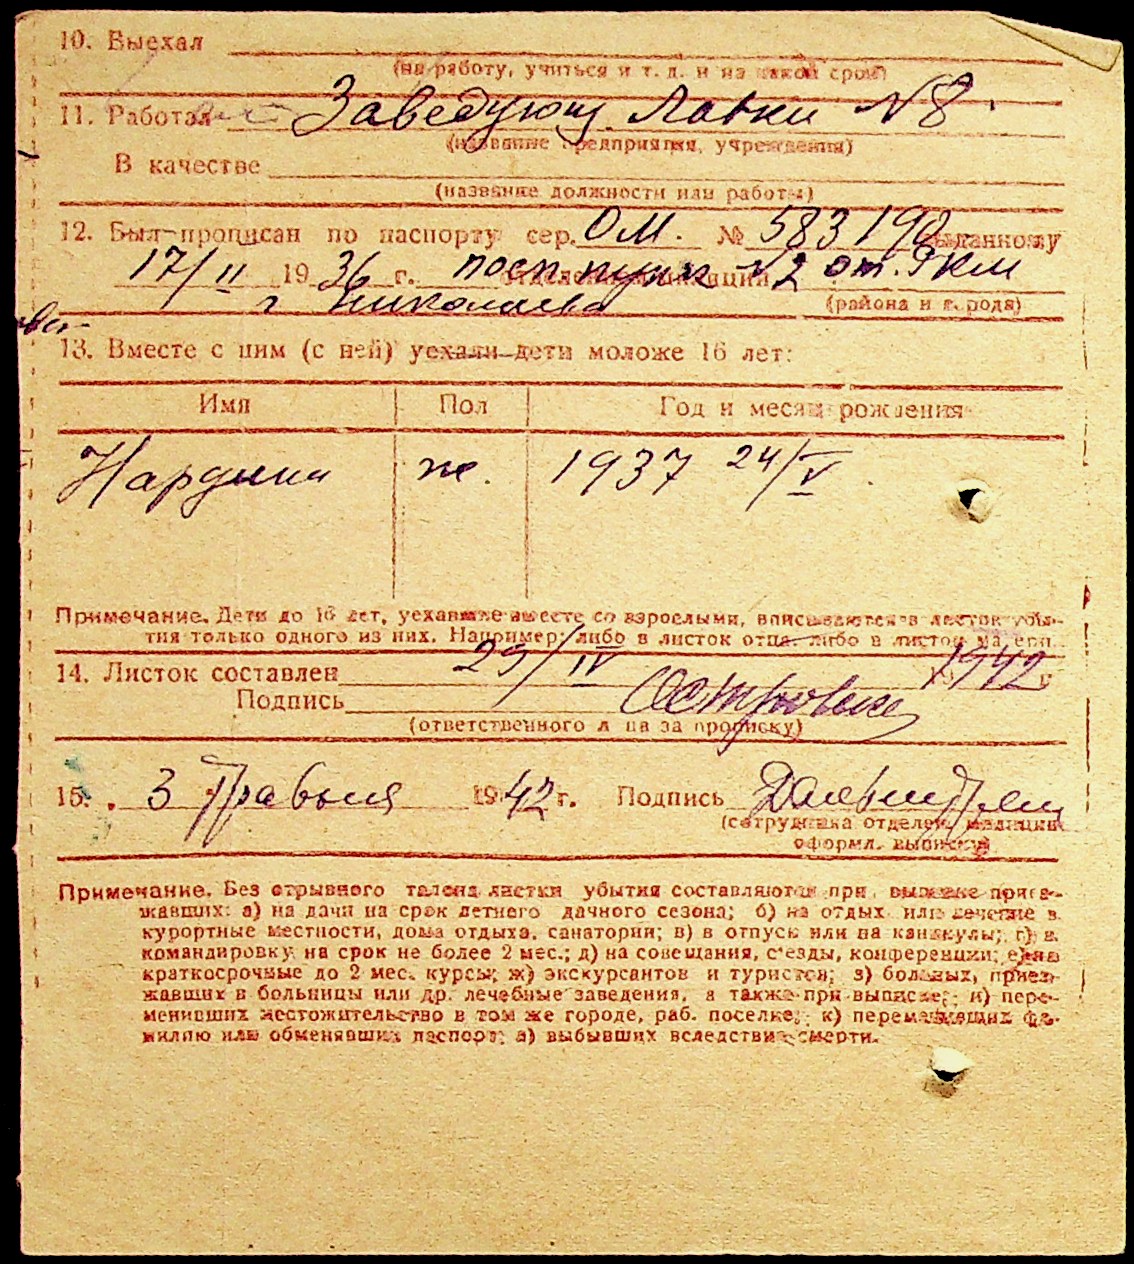 10. Выехал
(на работу, учиться и т. д. и на какой срок)
11. Работал Заведующ. Лавки №8.
(название предприятия, учреждения)
В качестве
(название должности или работы)
12. Был прописан по паспорту сер. ОМ. № 583190 выданному
17/II 1936 г. отделением милиции №2 от.
г Николаева (района и города)
13. Вместе с ним (с ней) уехали дети моложе 16 лет:
Имя Пол Год и месяц рождения
ж. 1937 24/V
Примечание. Дети до 16 лет, уехавшие вместе со взрослыми, вписываются в листок убы-
тия только одного из них. Например: либо в листок отца, либо в листок матери.
14. Листок составлен 29/IV 1942 г
Подпись
(ответственного лица за прописку)
15. 3 Травыня 1942 г. Подпись
(сотрудника отделен. милиции
оформл. выписку)
Примечание. Без отрывного талона листки убытия составляются при выписке приез-
жавших: а) на дачи на срок летнего дачного сезона; б) на отдых или лечение в
курортные местности, дома отдыха, санатории; в) в отпуск или на каникулы; г) в
командировку на срок не более 2 мес.; д) на совещания, с'езды, конференции; е) на
краткосрочные до 2 мес. курсы; ж) экскурсантов и туристов; з) больных, приез-
жавших в больницы или др. лечебные заведения, а также при выписке: и) пере-
менивших местожительство в том же городе, раб. поселке; к) переменивших фа-
милию или обменявших паспорт; л) выбывших вследствие смерти.